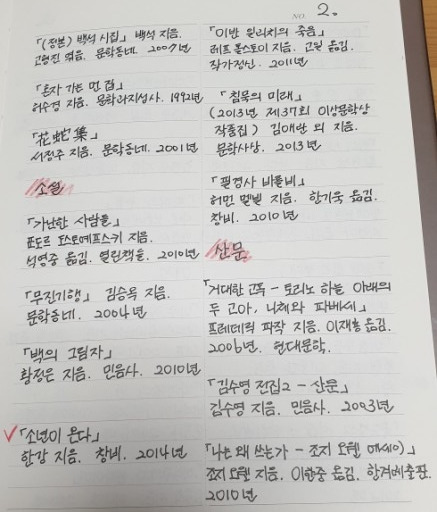 NO. 2.
「(정본) 백석 시집」 백석 지음.
고형진 엮음. 문학동네. 2007년
「혼자 가는 먼 집」
허수경 지음. 문학과지성사. 1992년
「花蛇集」
서정주 지음. 문학동네. 2001년
소설
「가난한 사람들」
표도르 도스토예프스키 지음.
석영중 옮김. 열린책들. 2010년
「무진기행」 김승옥 지음.
문학동네. 2004년
「백의 그림자」
황정은 지음. 민음사. 2010년
「소년이 온다」
한강 지음. 창비. 2014년
「이반 일리치의 죽음」
레프 톨스토이 지음. 고일 옮김.
작가정신. 2011년
「침묵의 미래」
(2013년 제37회 이상문학상
작품집) 김애란 외 지음.
문학사상. 2013년
「필경사 바틀비」
허먼 멜빌 지음. 한기욱 옮김.
창비. 2010년
산문
「거대한 고독 - 토리노 하늘 아래의
두 고아, 니체와 파베세」
프레데릭 파작 지음. 이재룡 옮김.
2006년. 현대문학.
「김수영 전집2 - 산문」
김수영 지음. 민음사. 2003년
「나는 왜 쓰는가 - 조지 오웰 에세이」
조지 오웰 지음. 이한중 옮김. 한겨레출판.
2010년